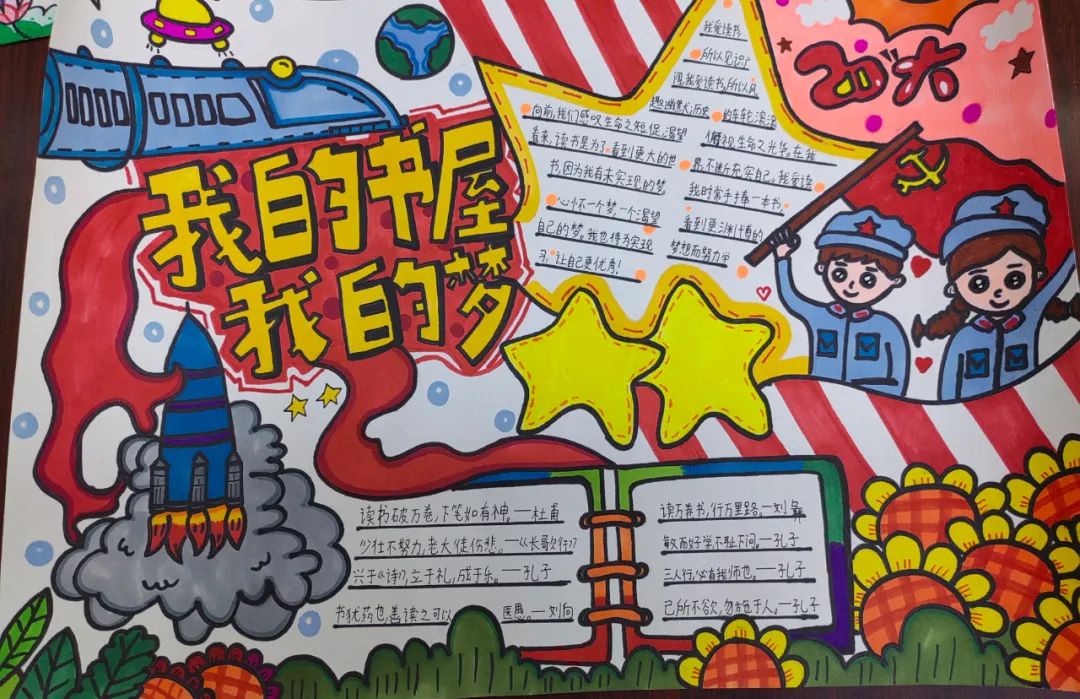 我的书屋
我的梦
我爱读书,
所以见识广
阔,我爱读书,所以风
趣幽默,历史 的车轮滚滚
向前,我们感叹生命之短促,渴望 俯视生命之光华。在我
看来,读书是为了看到更大的世 界,不断充实自己。我爱读
书,因为我有未实现的梦 我时常手捧一本书,
心怀一个梦,一个渴望 看到更渊博的
自己的梦。我也得为实现 梦想而努力学
习,让自己更优秀!
读书破万卷,下笔如有神。—杜甫
少壮不努力,老大徒伤悲。—《长歌行》
兴于《诗》,立于礼,成于乐。—孔子
书犹药也,善读之可以 医愚。—刘向
读万卷书,行万里路。—刘彝
敏而好学不耻下问。—孔子
三人行,必有我师也。—孔子
己所不欲,勿施于人。—孔子